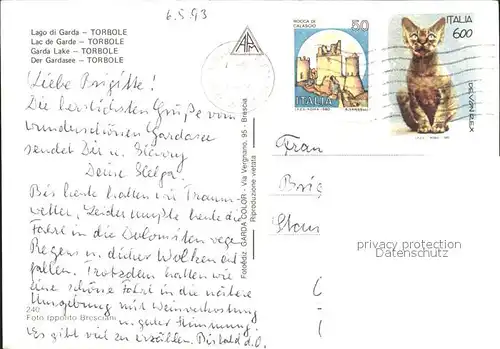 6.5.93
Lago di Garda – TORBOLE
Lac de Garde – TORBOLE
Garda Lake – TORBOLE
Der Gardasee – TORBOLE
Liebe Brigitte!
Die herzlichsten Grüße vom
wunderschönen Gardasee
sendet Dir u.
Deine
Bis heute hatten wir Traum-
wetter. Leider mußte heute die
Fahrt in die Dolomiten wegen
Regens u. dicker Wolken ent-
fallen. Trotzdem hatten wir
eine schöne Fahrt in die nähere
Umgebung mit Weinverkostung
u. guter Stimmung!
Es gibt viel zu erzählen. Bis bald
240
Foto Ippolito Bresciani
Fotoediz. GARDA COLOR - Via Vergnano, 95 - Brescia
Riproduzione vietata
ROCCA DI CALASCIO
50
ITALIA
I.P.Z.S. ROMA 1980
ITALIA
600
DEVON REX
I.P.Z.S. ROMA
Frau
Brig
privacy protection
Datenschutz